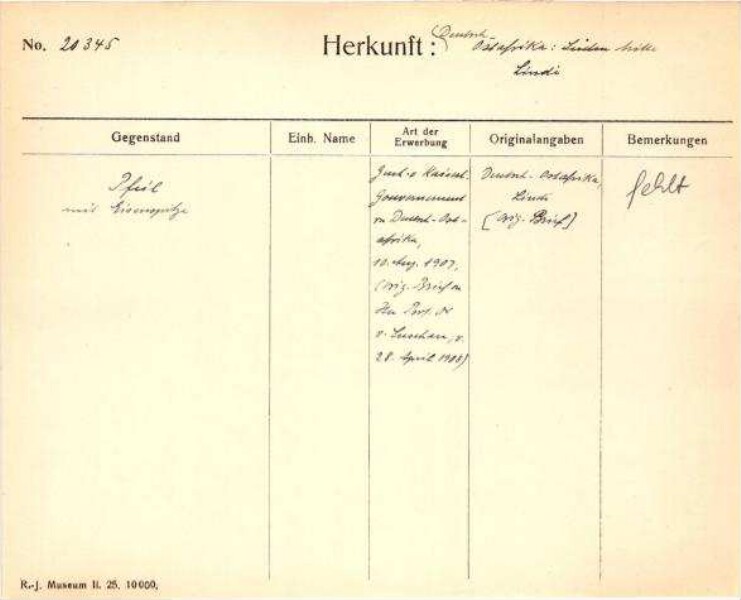 No. 20345
Herkunft: Deutsch-
Ostafrika:
Lindi
Gegenstand
Einh. Name
Art der
Erwerbung
Originalangaben
Bemerkungen
Pfeil
mit Eisenspitze
Kaiserl.
Gouvernement
v. Deutsch-Ost-
afrika,
10. Aug. 1907,
(Orig. Brief an
Hrn Prof. Dr
v. Luschan, v.
28. April 1908)
Deutsch-Ostafrika,
Lindi
[Orig. Brief]
fehlt
R.-J. Museum II. 25. 10000.